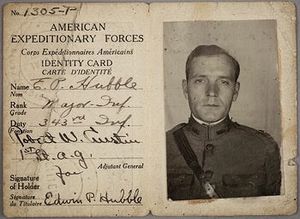 No. 1305-P
AMERICAN
EXPEDITIONARY FORCES
Corps Expéditionnaires Américains
IDENTITY CARD
CARTE D'IDENTITÉ
Name E. P. Hubble
Nom
Rank Major-Inf.
Grade
Duty 343rd Inf.
Fonction
Robert W.
1st
A.G. Adjutant General
for
Signature
of Holder
Signature
du Titulaire Edwin P. Hubble